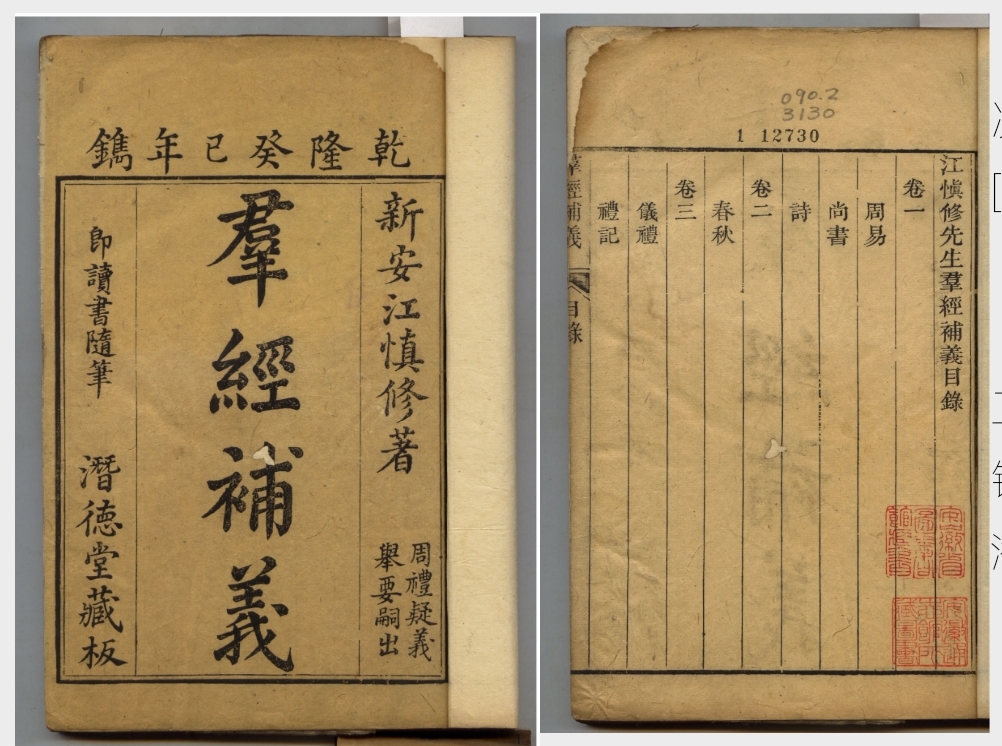 乾隆癸巳年鐫
新安江慎修著
周禮疑義
舉要嗣出
羣經補義
即讀書隨筆
潛德堂藏板
090.2
3130
1 12730
江慎修先生羣經補義目錄
卷一
周易
尚書
詩
卷二
春秋
卷三
儀禮
禮記
羣經補義
目錄